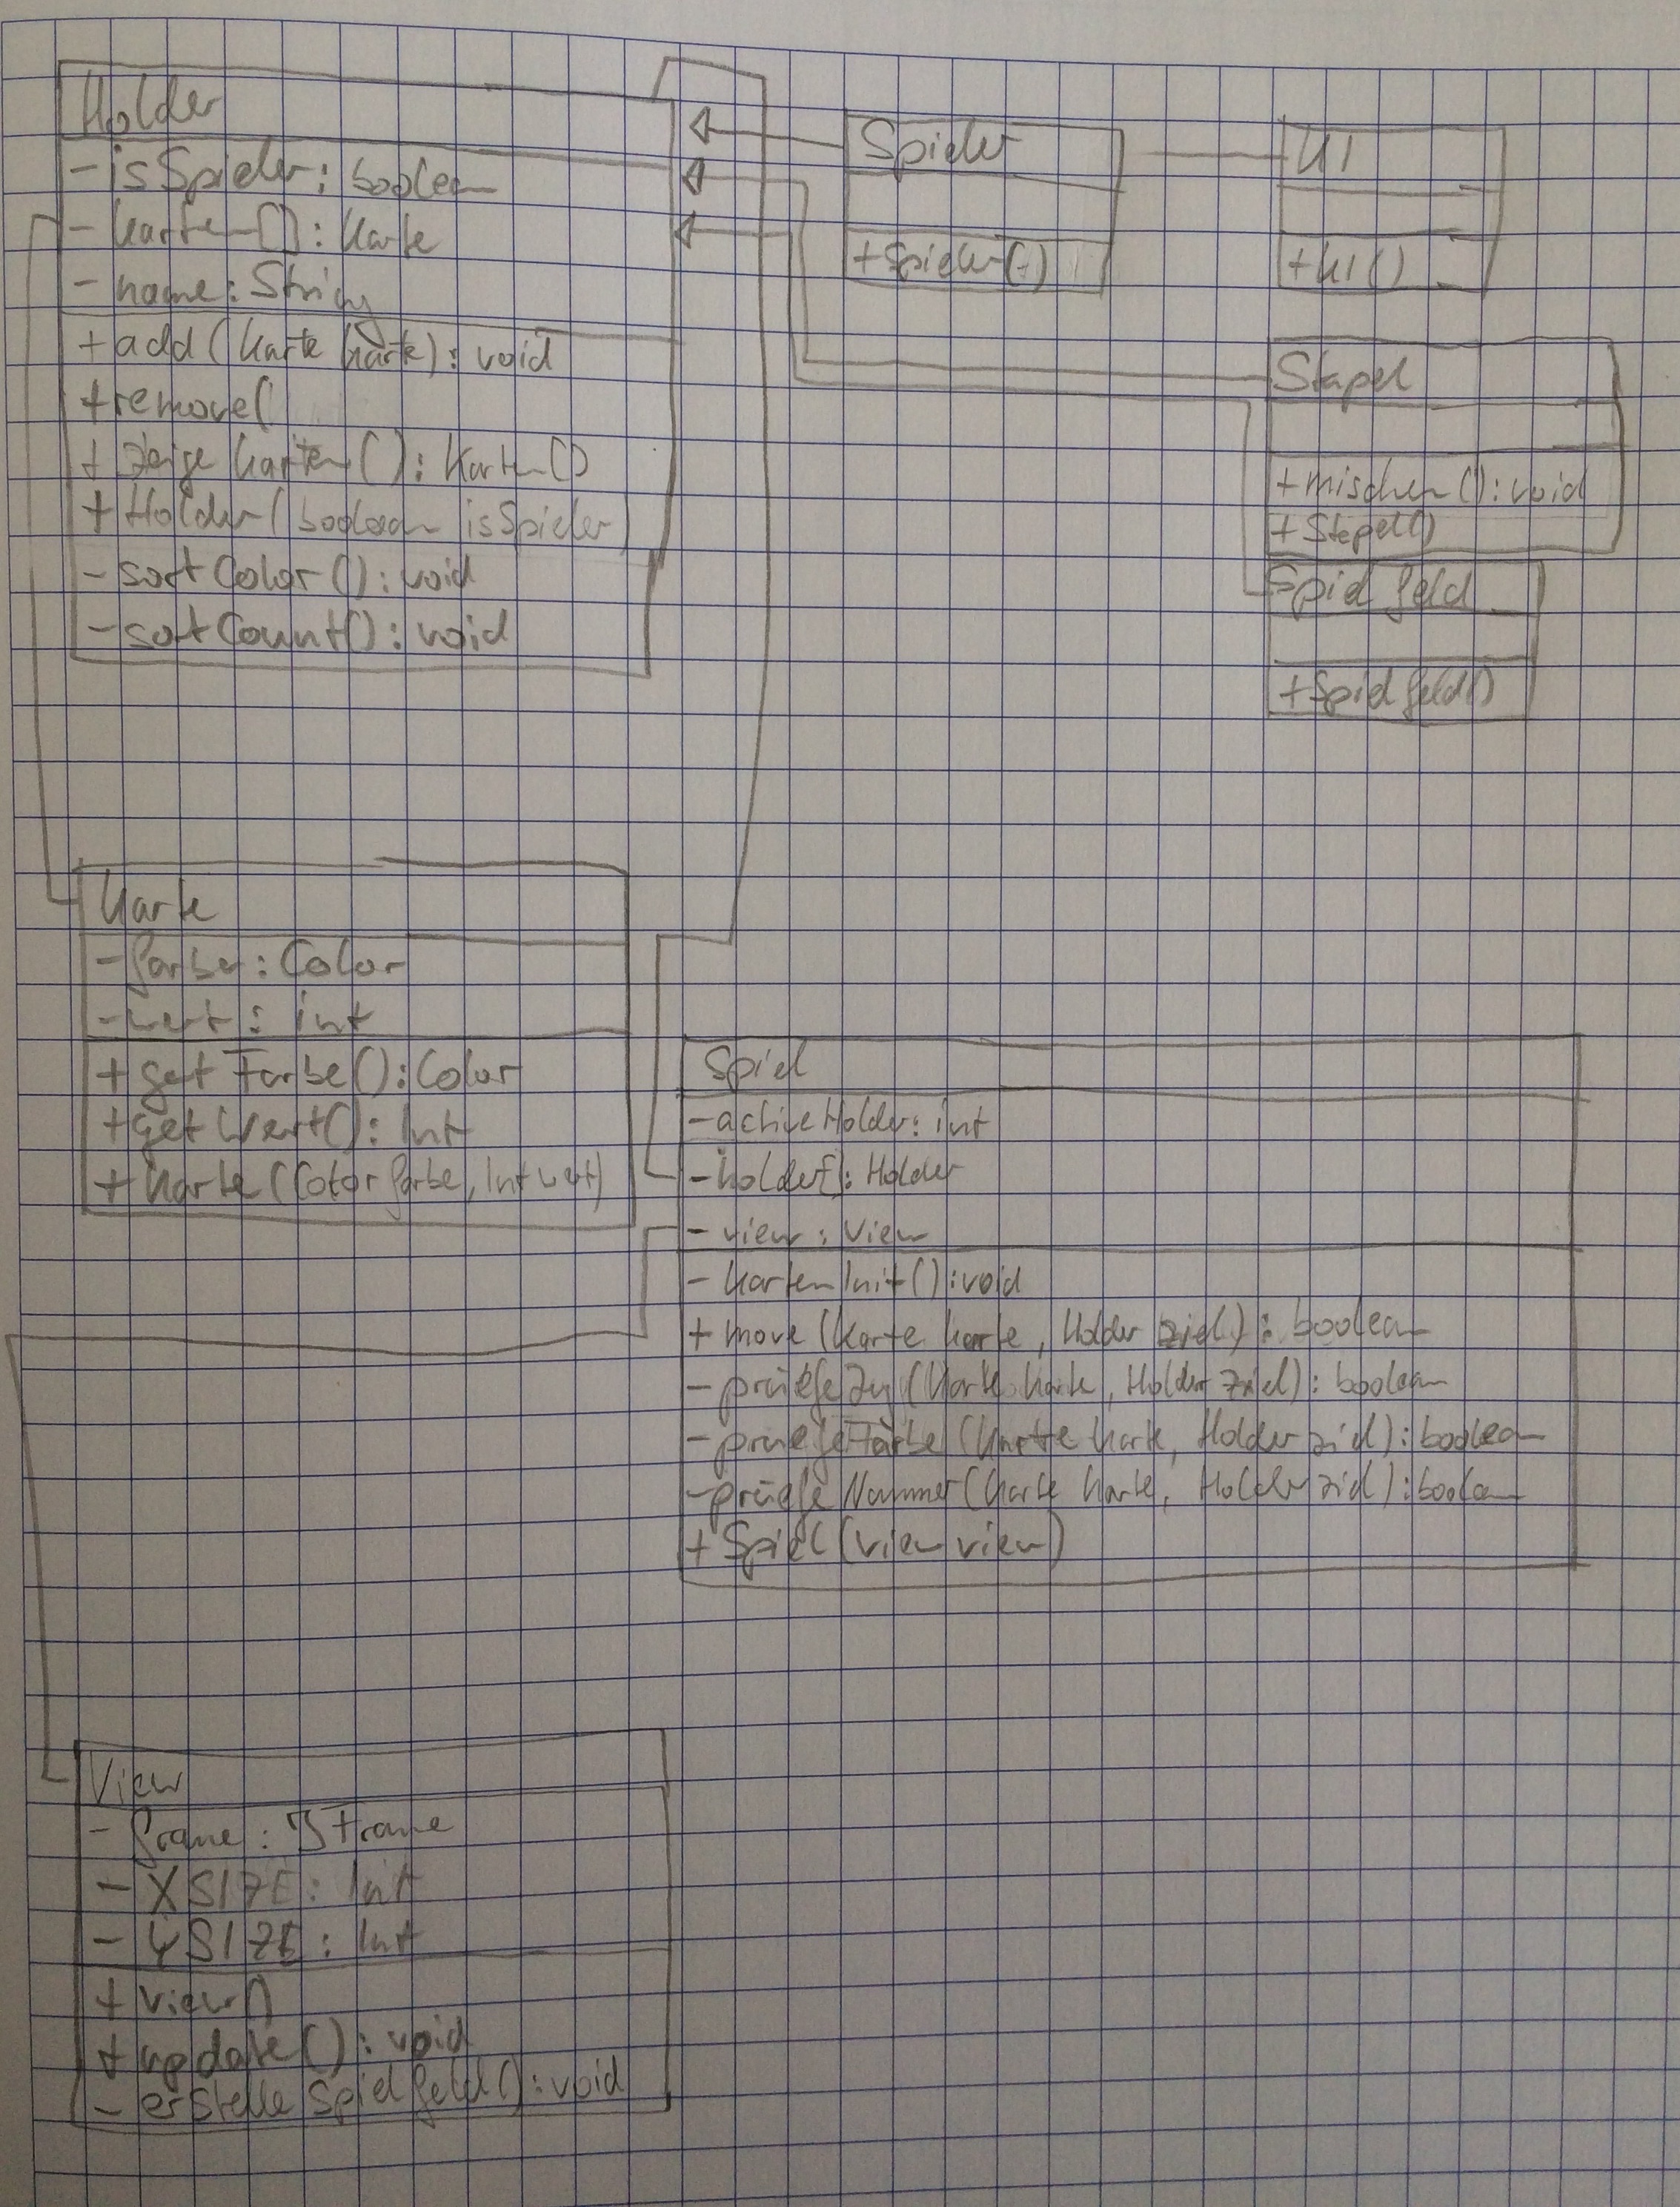 Holder
- isSpieler: boolean
- karten[]: Karte
- name: String
+ add(Karte karte): void
+ remove(
+ zeige Karten(): Karten[]
+ Holder(boolean isSpieler)
- sortColor(): void
- sortCount(): void
Spieler
+ Spieler()
KI
+ KI()
Stapel
+ mischen(): void
+ Stapel()
Spielfeld
+ Spielfeld()
Karte
- farbe: Color
- wert: int
+ getFarbe(): Color
+ getWert(): Int
+ Karte(Color farbe, Int wert)
Spiel
- activeHolder: int
- holder[]: Holder
- view: View
- kartenInit(): void
+ move(Karte karte, Holder ziel): boolean
- pruefeZug(Karte karte, Holder ziel): boolean
- pruefeFarbe(Karte karte, Holder ziel): boolean
- pruefeNummer(Karte karte, Holder ziel): boolean
+ Spiel(View view)
View
- frame: JFrame
- XSIZE: Int
- YSIZE: Int
+ View()
+ update(): void
- erstelleSpielfeld(): void